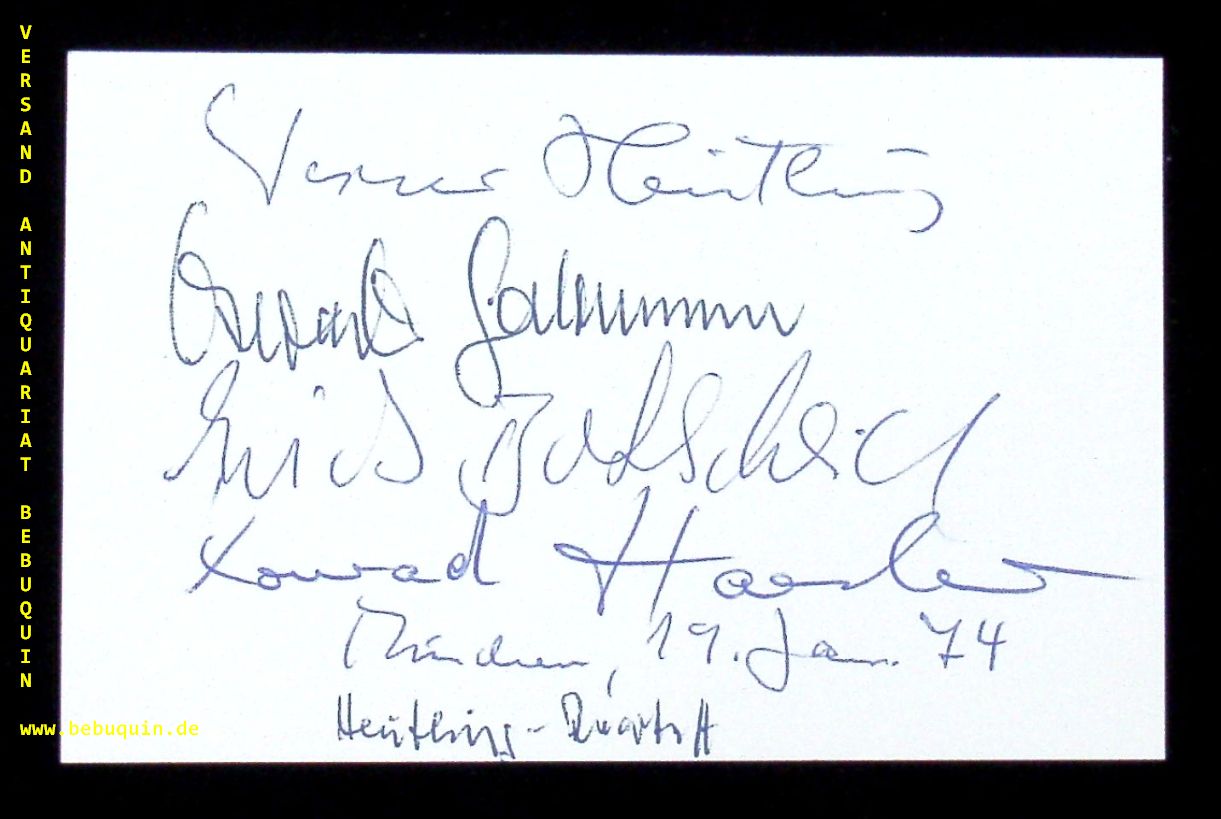 VERSAND ANTIQUARIAT BEBUQUIN
www.bebuquin.de
Werner Heutling
Oswald Gattermann
Erich Bohlscheid
Konrad Haesler
München, 19. Jan. 74
Heutling-Quartett